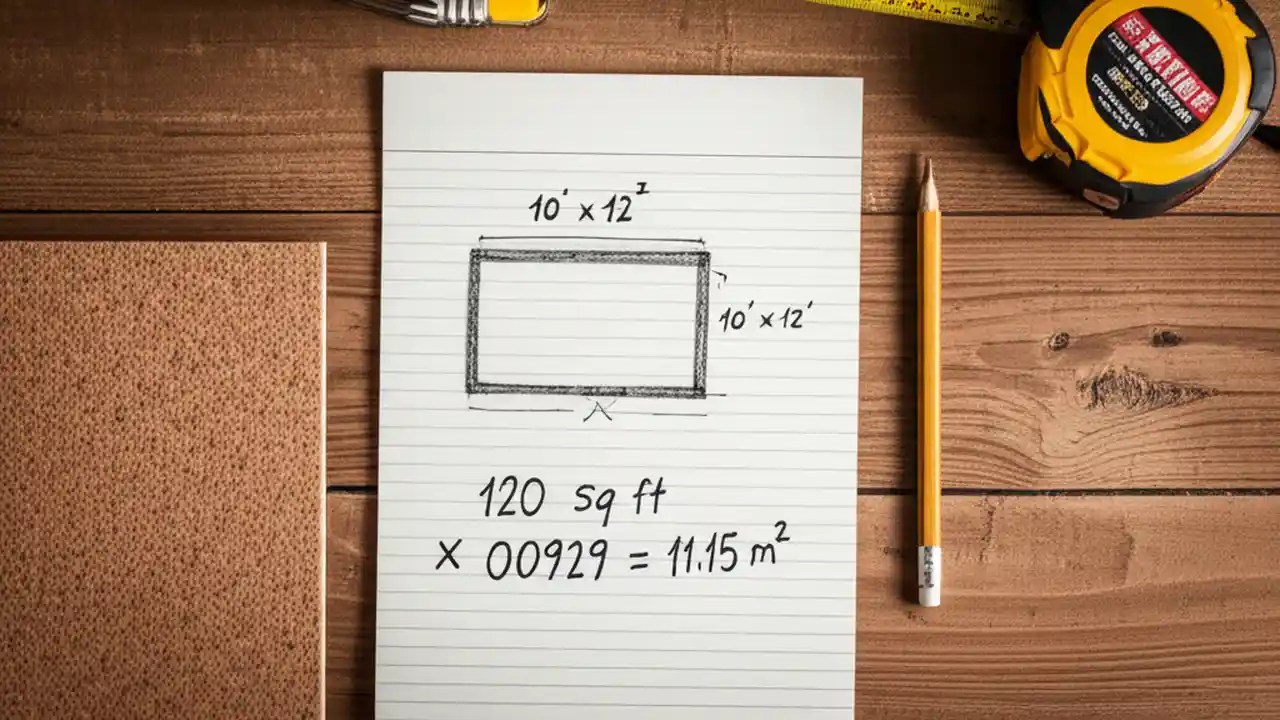 10' x 12²
10' x 12'
120 sq ft
x 00929 = 11.15 m²